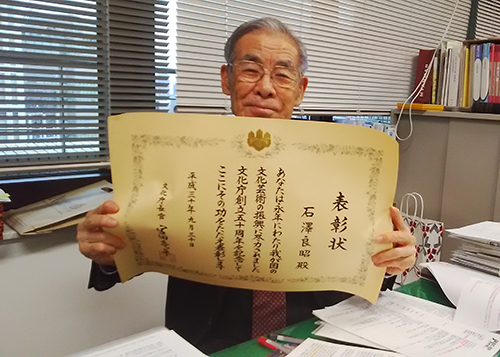 表彰状
石澤良昭殿
あなたは永年にわたり我が国の
文化芸術の振興に尽力されました
文化庁創立五十周年を記念して
ここにその功をたたえ表彰します
平成三十年
文化庁長官 宮田亮平